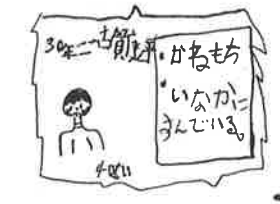 30年ご
・かねもち
・いなかに
すんでいる。
40さい